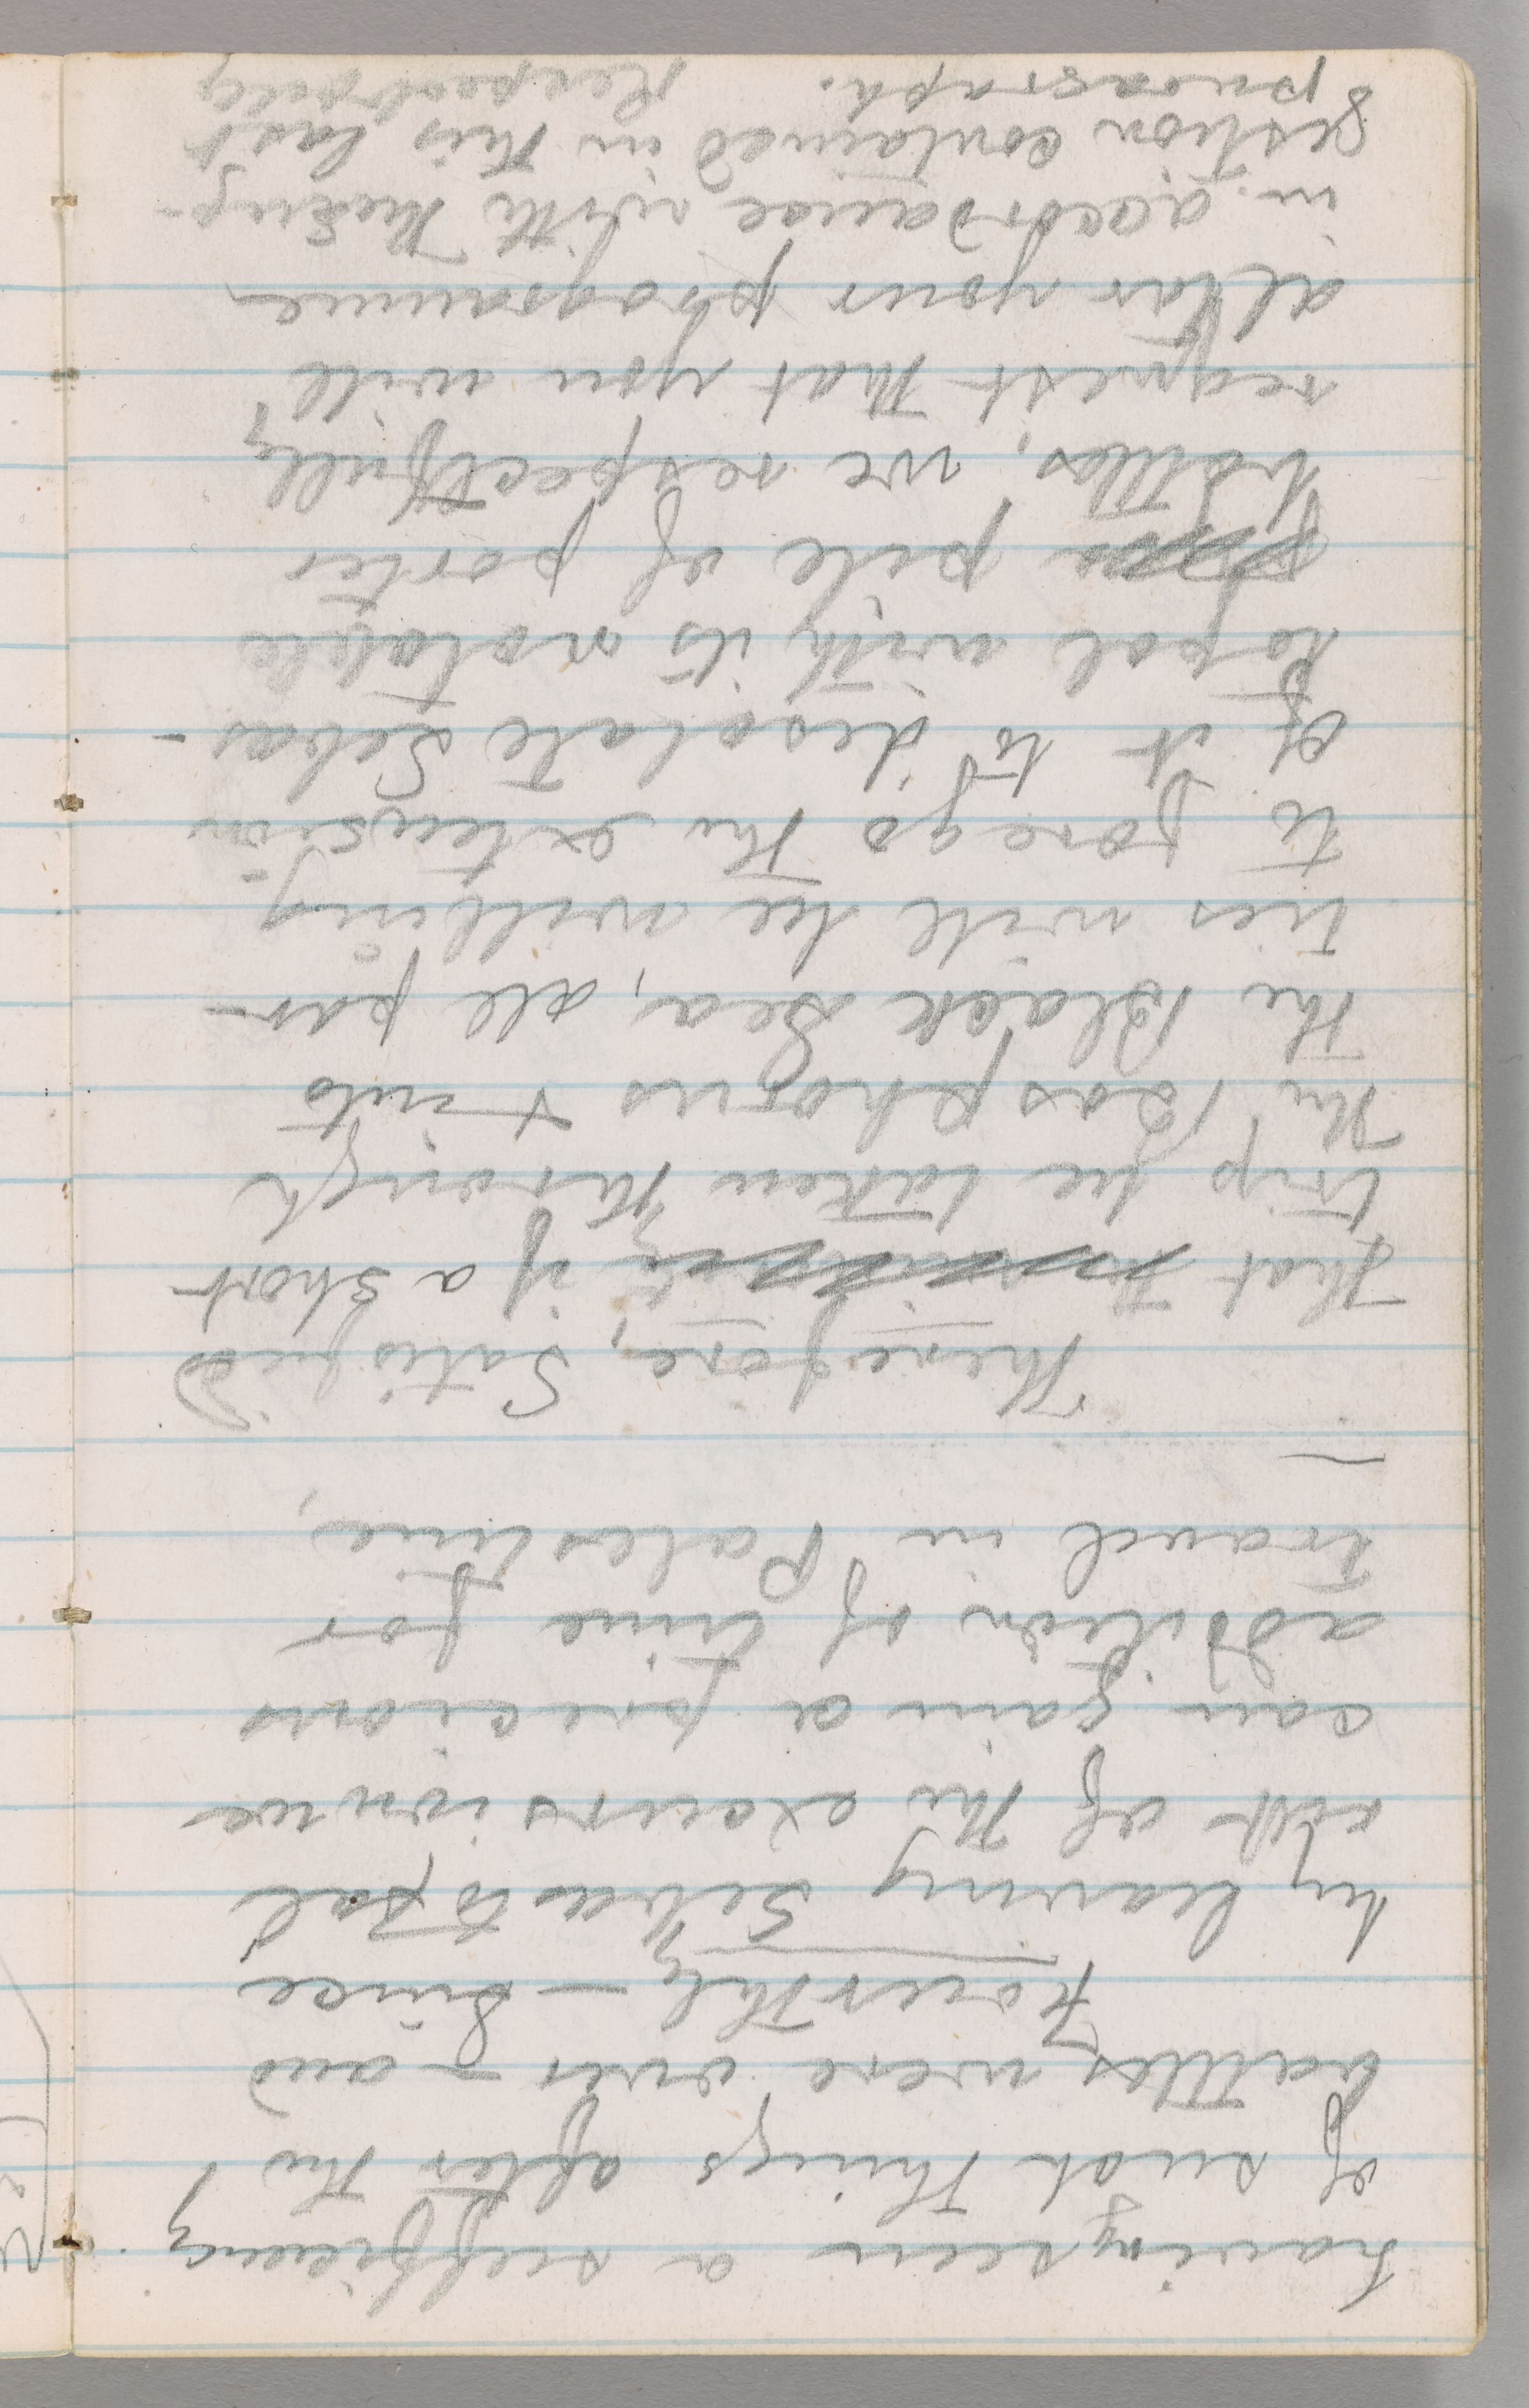 having seen a sufficiency
of such things after the
battles were over — and
Fourthly — Since
by leaving Sebastopol
out of the excursion we
can gain a precious
addition of time for
travel in Palestine,
—
Therefore, Satisfied
that if a short
trip be taken through
the Bosphorus & into
the Black Sea, all par-
ties will be willing
to forego the extension
of it to desolate Sebas-
topol with its notable
pile of porter
bottles, we respectfully
request that you will
alter your programme
in accordance with the sug-
gestion contained in this last
paragraph. Respectfully